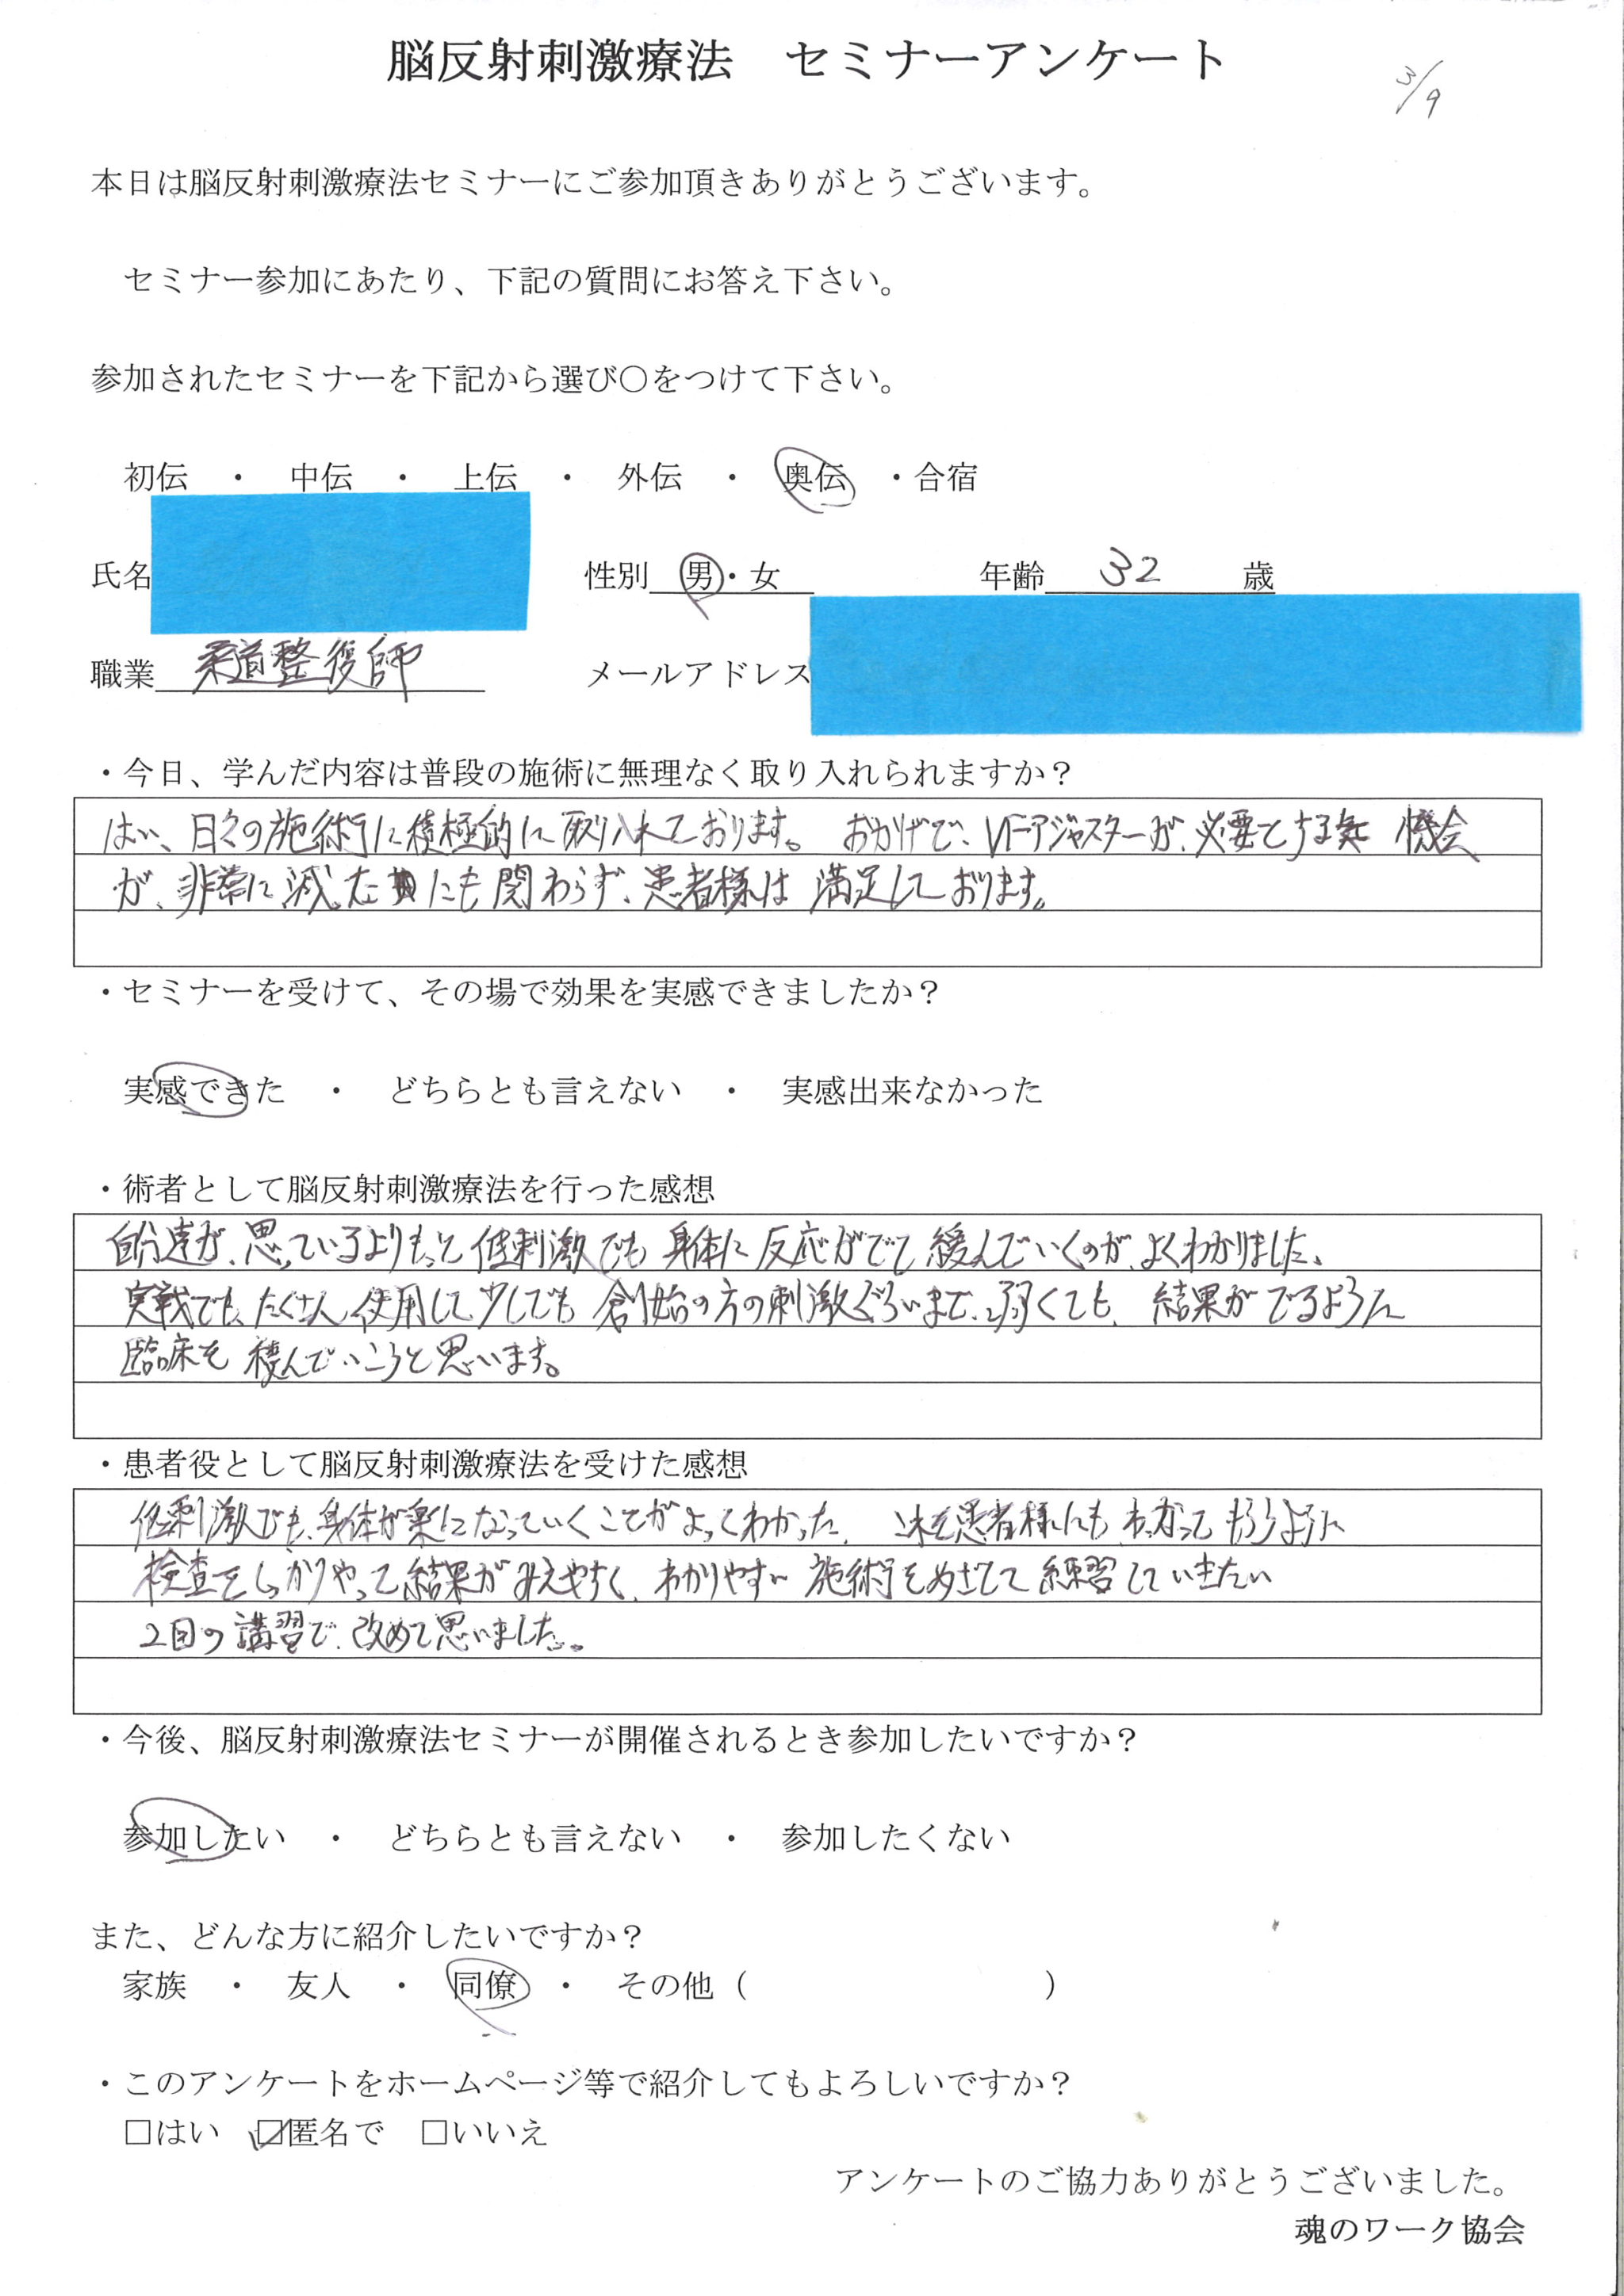 脳反射刺激療法　セミナーアンケート
3/9
本日は脳反射刺激療法セミナーにご参加頂きありがとうございます。
セミナー参加にあたり、下記の質問にお答え下さい。
参加されたセミナーを下記から選び〇をつけて下さい。
初伝　・　中伝　・　上伝　・　外伝　・　奥伝　・合宿
氏名　性別　男・女　年齢　32　歳
職業　柔道整復師　メールアドレス
・今日、学んだ内容は普段の施術に無理なく取り入れられますか？
はい、日々の施術に積極的に取り入れております。おかげで、VFアジャスターが、必要とする機会
が、非常に減ったにも関わらず、患者様は満足しております。
・セミナーを受けて、その場で効果を実感できましたか？
実感できた　・　どちらとも言えない　・　実感出来なかった
・術者として脳反射刺激療法を行った感想
自分達が、思っているよりもっと低刺激でも身体に反応がでて緩んでいくのが、よくわかりました。
実戦でも、たくさん使用して少しでも創始の方の刺激ぐらいまで、弱くても、結果がでるように
臨床を積んでいこうと思います。
・患者役として脳反射刺激療法を受けた感想
低刺激でも、身体が楽になっていくことがよってくわかった。これを患者様にもわかってもらうように
検査をしっかりやって結果がみえやすく、わかりやすい施術をめざして練習していきたい
2回の講習で、改めて思いました。
・今後、脳反射刺激療法セミナーが開催されるとき参加したいですか？
参加したい　・　どちらとも言えない　・　参加したくない
また、どんな方に紹介したいですか？
家族　・　友人　・　同僚　・　その他（　　　　　　　　　）
・このアンケートをホームページ等で紹介してもよろしいですか？
□はい　☑匿名で　□いいえ
アンケートのご協力ありがとうございました。
魂のワーク協会